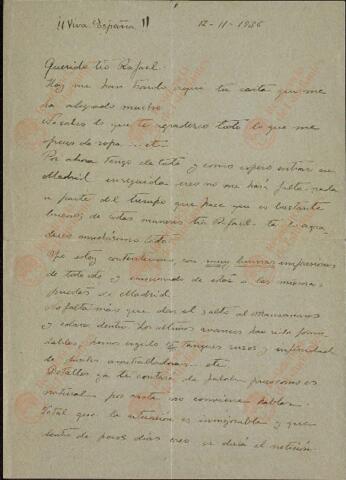 ¡¡Viva España!! 12-11-1936
Querido tío Rafael.
Hoy me han traido aqui tu carta que me
ha alegrado mucho
No sabes lo que te agradezco todo lo que me
de ropa... etc.
Por ahora tengo de todo y como espero entrar en
Madrid enseguida creo no me hará falta nada
a parte del tiempo que hace que es bastante
bueno, de todas maneras tío Rafael te lo agra
dezco muchísimo todo.
Yo estoy contentísimo, con muy buenas impresiones
de todo y emocionado de estar a las mismas
puertas de Madrid.
No falta más que dar el salto al Manzanares
y estar dentro. Los ultimos avances han sido formi
dables, hemos cogido tanques rusos y infinidad
de ametralladoras etc
Detalles ya te contaré de palabra pues como es
natural por carta no conviene hablar.
Total que la situación es inmejorable y que
dentro de pocos dias creo se dará el notición.